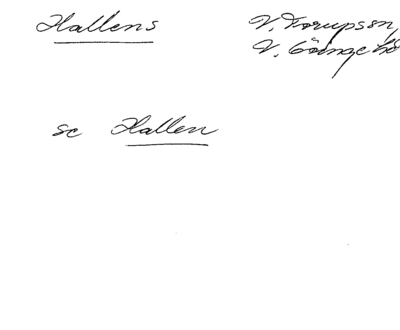 Hallens
V. Torupssn,
V. Göinge hd
se Hallen